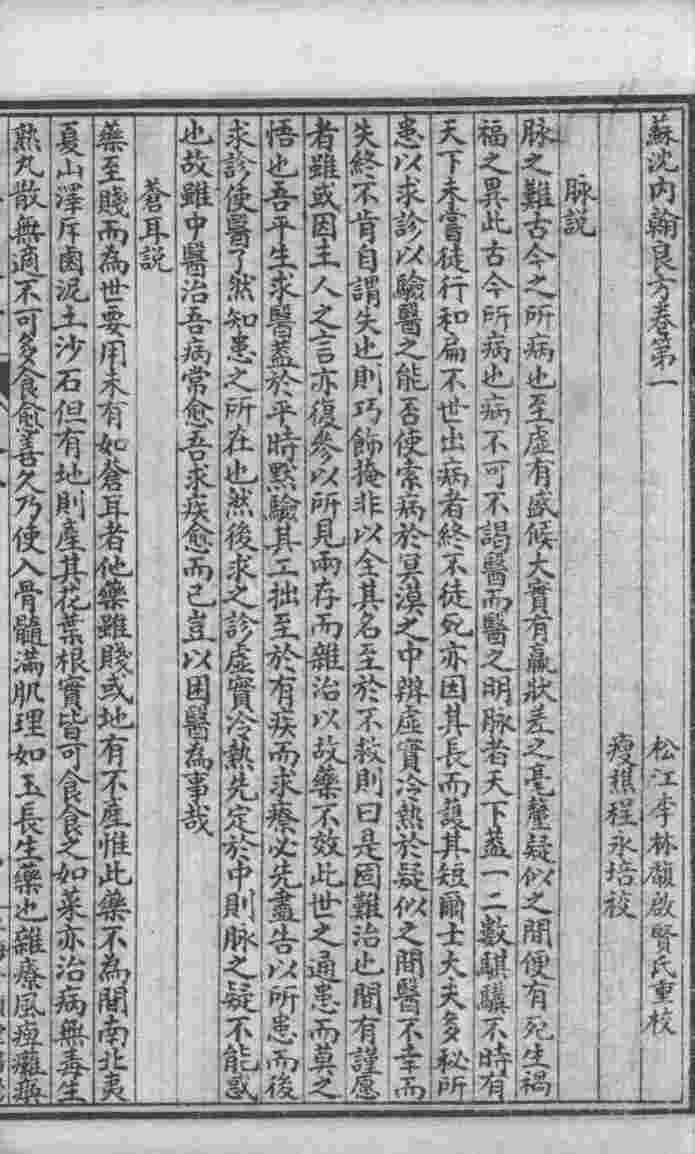 蘇沈内翰良方卷第一
松江李林馥啟賢氏重校
瘦樵程永培校
脉説
脉之難古今之所病也至虛有盛候大實有羸狀差之毫釐疑似之間便有死生禍
福之異此古今所病也病不可不謁醫而醫之明脉者天下蓋一二數騏驥不時有
天下未嘗徒行和扁不世出病者終不徒死亦因其長而護其短爾士大夫多秘所
患以求診以驗醫之能否使索病於冥漠之中辯虛實冷熱於疑似之間醫不幸而
失終不肯自謂失也則巧飾掩非以全其名至於不救則曰是固難治也間有謹愿
者雖或因主人之言亦復參以所見兩存而雜治以故藥不效此世之通患而莫之
悟也吾平生求醫蓋於平時默驗其工拙至於有疾而求療必先盡告以所患而後
求診使醫了然知患之所在也然後求之診虛實冷熱先定於中則脉之疑不能惑
也故雖中醫治吾病常愈吾求疾愈而已豈以困醫為事哉
蒼耳説
藥至賤而為世要用未有如蒼耳者他藥雖賤或地有不產惟此藥不為間南北夷
夏山澤斥鹵泥土沙石但有地則產其花葉根實皆可食食之如菜亦治病無毒生
熟丸散無適不可多食愈善久乃使人骨髓滿肌理如玉長生藥也雜療風痺癱瘓